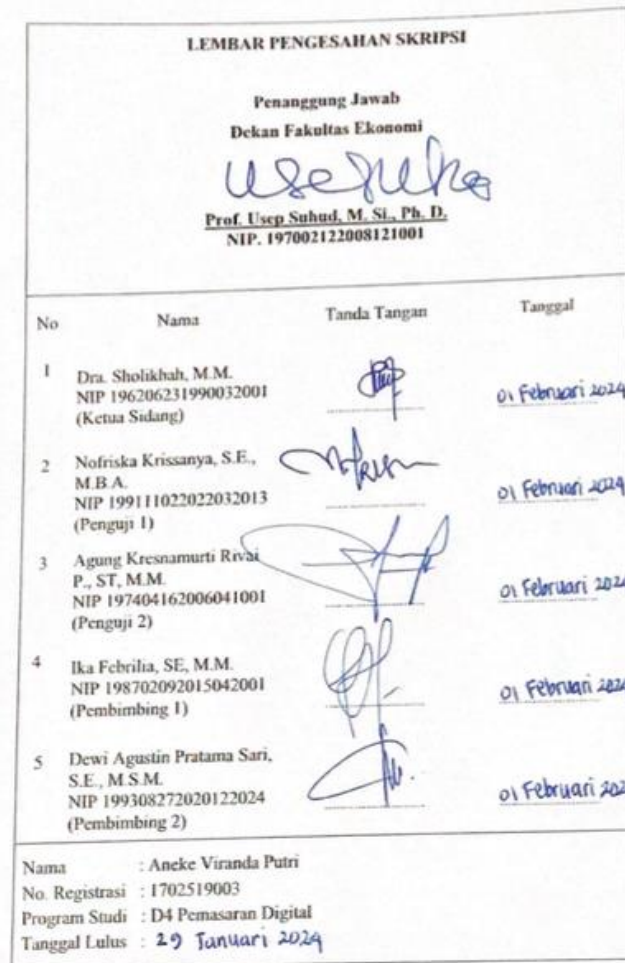 LEMBAR PENGESAHAN SKRIPSI
Penanggung Jawab
Dekan Fakultas Ekonomi
Prof. Usep Suhud, M. Si., Ph. D.
NIP. 197002122008121001
No Nama Tanda Tangan Tanggal
1 Dra. Sholikhah, M.M.
NIP 196206231990032001 01 Februari 2024
(Ketua Sidang)
2 Nofriska Krissanya, S.E.,
M.B.A.
NIP 199111022022032013 01 Februari 2024
(Penguji 1)
3 Agung Kresnamurti Rivai
P., ST, M.M.
NIP 197404162006041001 01 Februari 202
(Penguji 2)
4 Ika Febrilia, SE, M.M.
NIP 198702092015042001 01 Februari 202
(Pembimbing 1)
5 Dewi Agustin Pratama Sari,
S.E., M.S.M.
NIP 199308272020122024 01 Februari 202
(Pembimbing 2)
Nama : Aneke Viranda Putri
No. Registrasi : 1702519003
Program Studi : D4 Pemasaran Digital
Tanggal Lulus : 29 Januari 2024